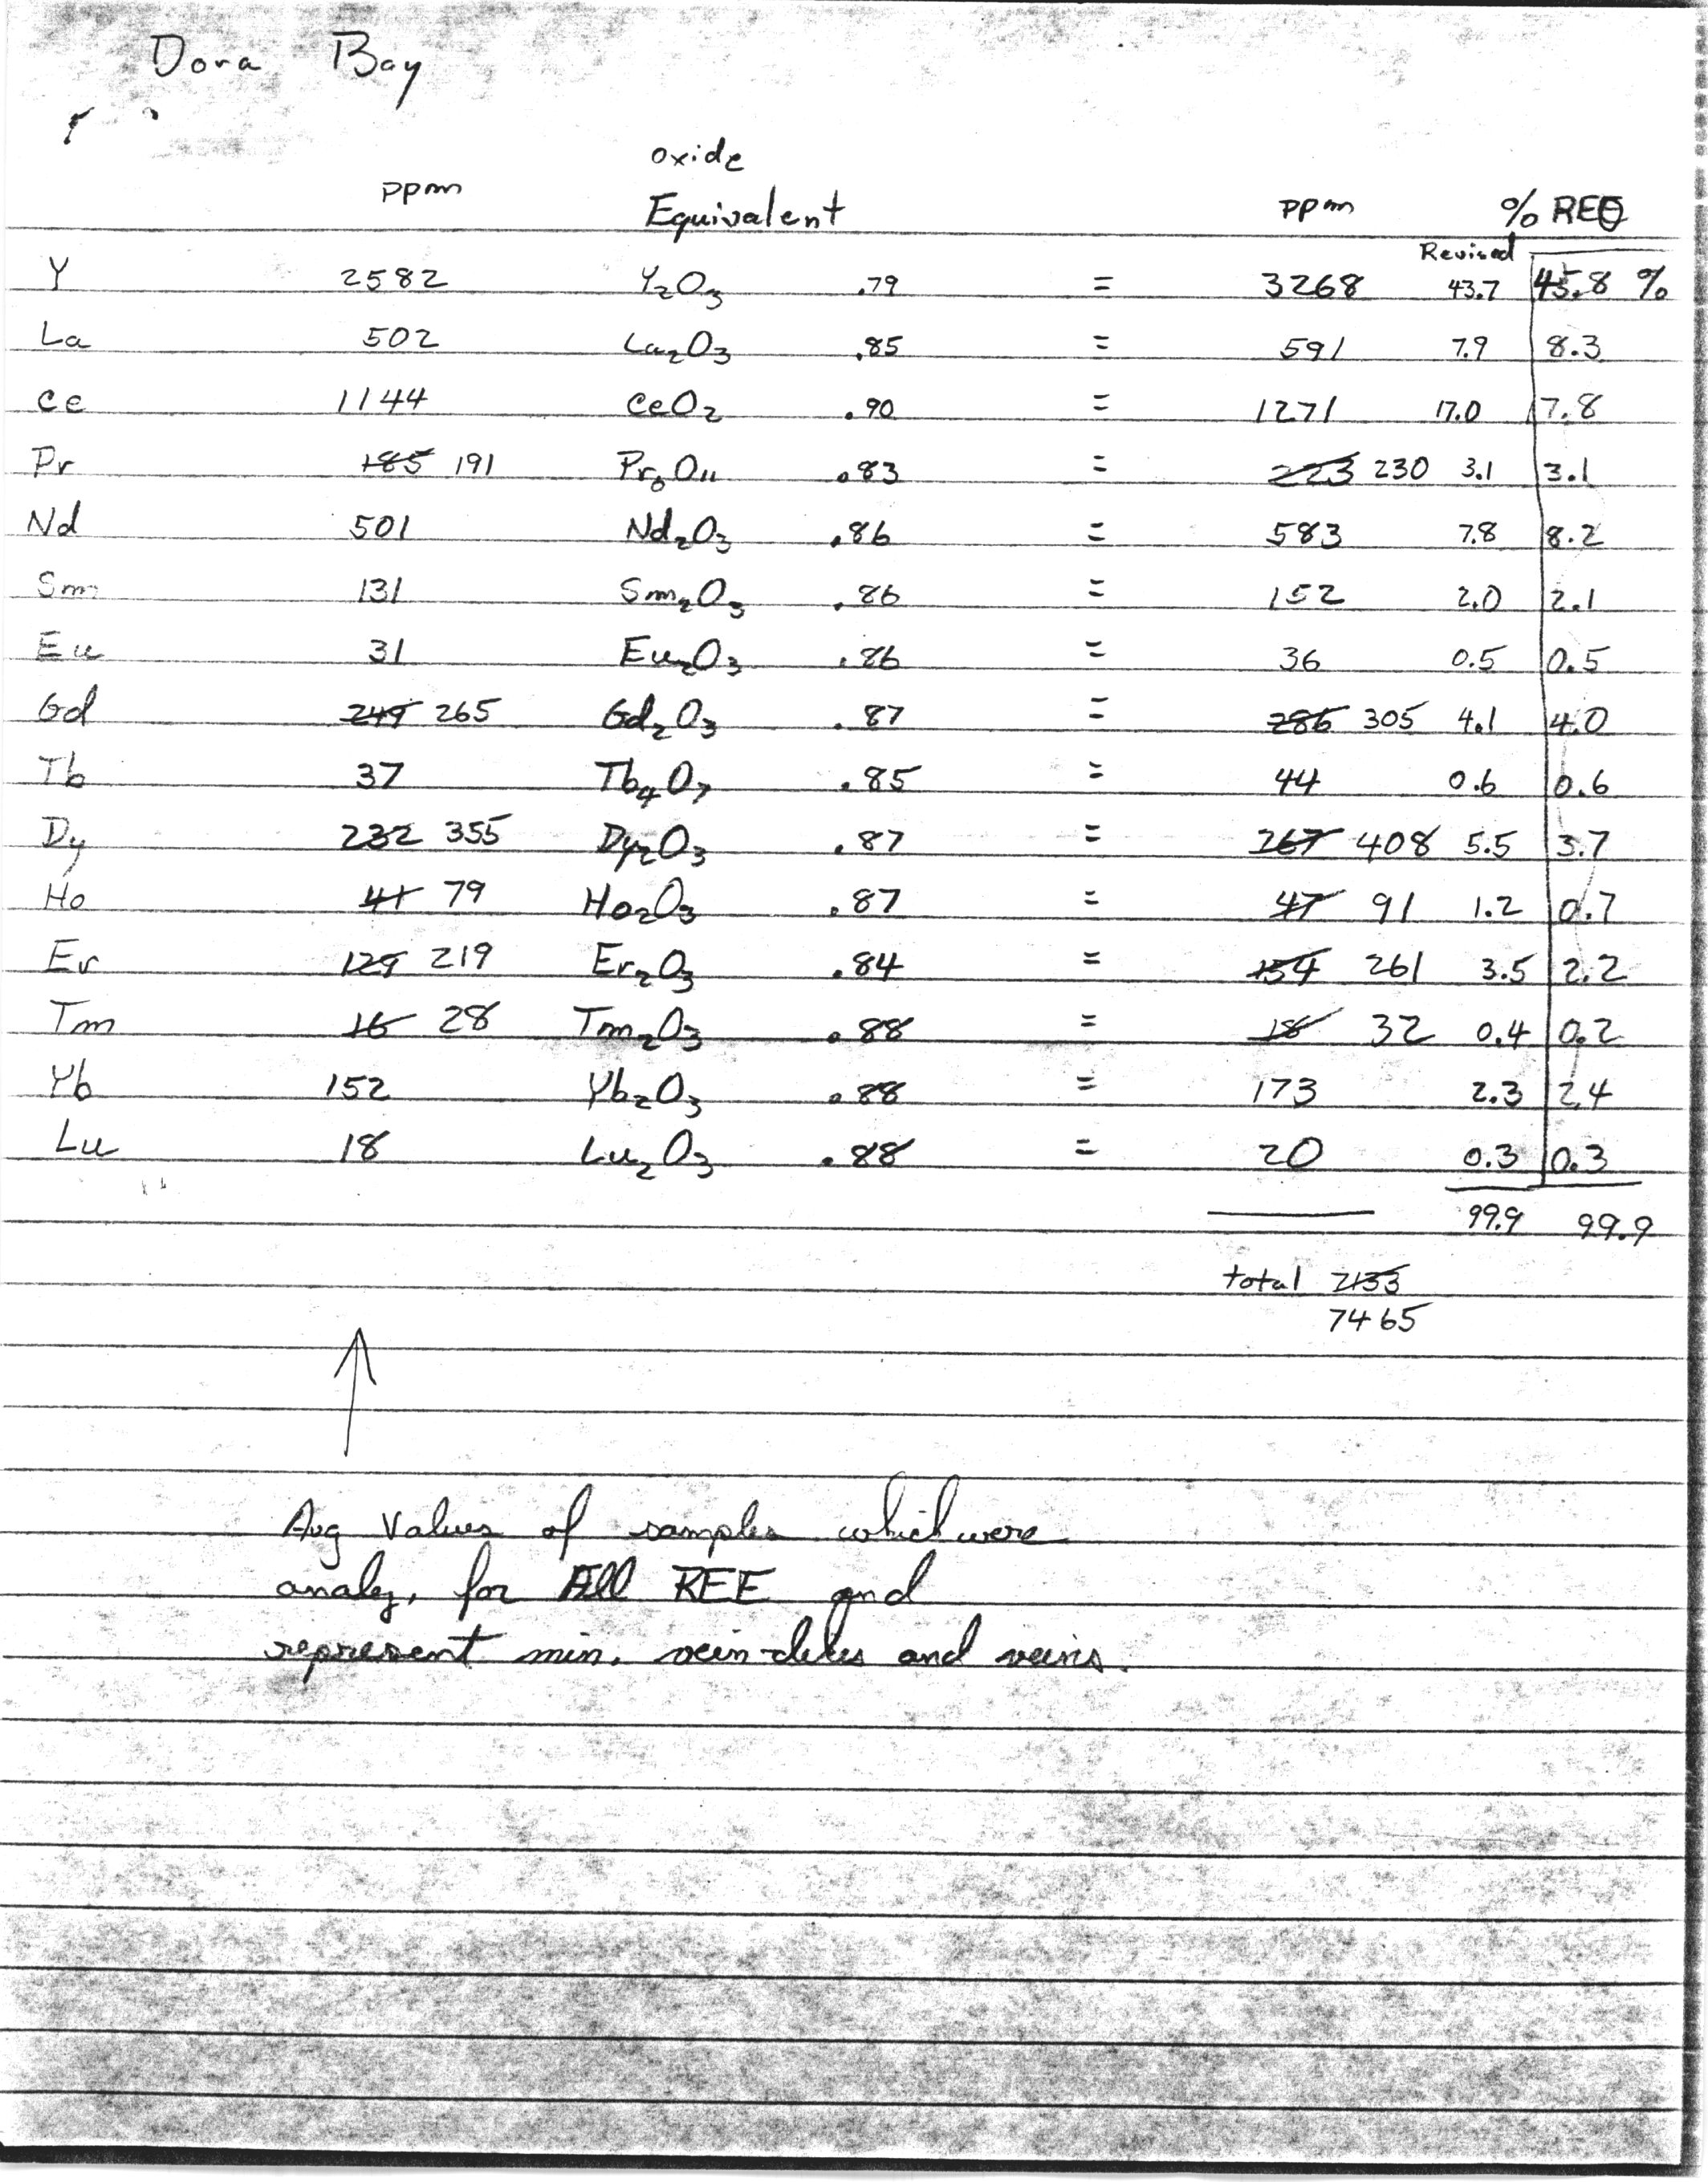 Dora Bay
oxide
ppm Equivalent ppm % REO
Revised
Y 2582 Y₂O₃ .79 = 3268 43.7 45.8 %
La 502 La₂O₃ .85 = 591 7.9 8.3
Ce 1144 CeO₂ .90 = 1271 17.0 17.8
Pr 185 191 Pr₆O₁₁ .83 = 223 230 3.1 3.1
Nd 501 Nd₂O₃ .86 = 583 7.8 8.2
Sm 131 Sm₂O₃ .86 = 152 2.0 2.1
Eu 31 Eu₂O₃ .86 = 36 0.5 0.5
Gd 249 265 Gd₂O₃ .87 = 286 305 4.1 4.0
Tb 37 Tb₄O₇ .85 = 44 0.6 0.6
Dy 232 355 Dy₂O₃ .87 = 267 408 5.5 3.7
Ho 41 79 Ho₂O₃ .87 = 47 91 1.2 0.7
Er 129 219 Er₂O₃ .84 = 154 261 3.5 2.2
Tm 16 28 Tm₂O₃ .88 = 18 32 0.4 0.2
Yb 152 Yb₂O₃ .88 = 173 2.3 2.4
Lu 18 Lu₂O₃ .88 = 20 0.3 0.3
99.9 99.9
total 7133
7465
Avg Values of samples which were
analy. for All REE and
represent min. vein-dikes and veins.